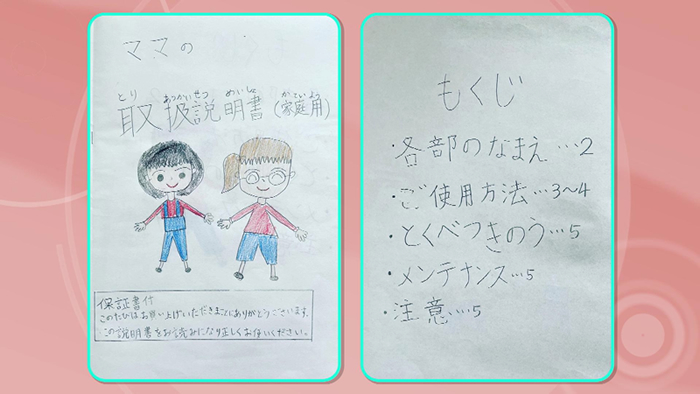 ママの
とり あつかいせつ めいしょ かていよう
取扱説明書(家庭用)
保証書付
このたびはお買い上げいただきまことにありがとうございます。
この説明書をお読みになり正しくお使いください。
もくじ
・各部のなまえ…2
・ご使用方法…3~4
・とくべつきのう…5
・メンテナンス…5
・注意…5